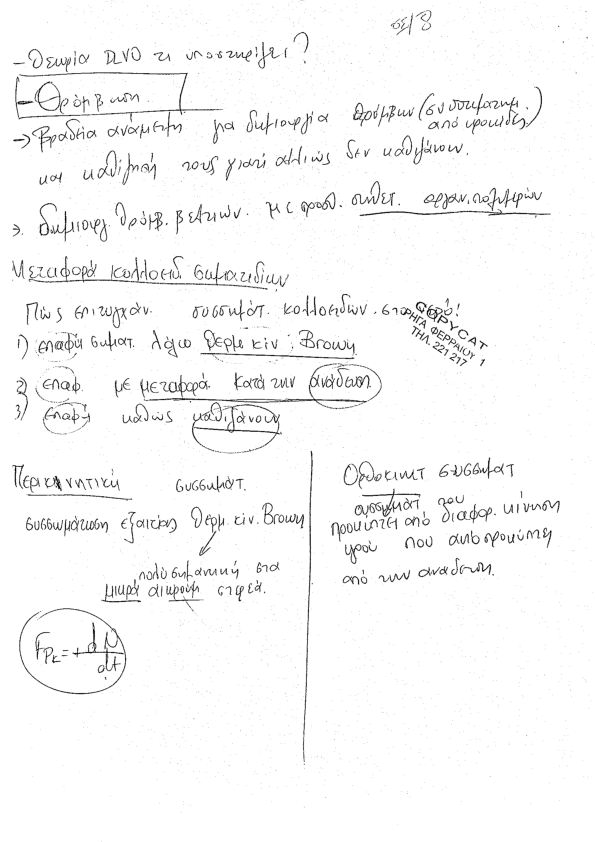 σελ 8
- Θεωρία DLVO τι υποστηρίζει?
- Θρόμβωση.
→ Βραδεία ανάμειξη για δημιουργία θρόμβων (συσσωμάτωμ. από κροκίδες)
και καθίζησή τους γιατί αλλιώς δεν καθιζάνουν.
→ δημιουργ. θρόμβ. βελτιων. με προσθ. συνθετ. οργαν. πολυμερών
Μεταφορά κολλοειδ σωματιδίων
Πώς επιτυγχάν. συσσωμάτ. κολλοειδών. στο νερό!
1) επαφή σωματ. λόγω θερμ κίν; Brown
2) επαφ. με μεταφορά κατά την ανάδευση
3) επαφή καθώς καθιζάνουν
COPYCAT
ΡΗΓΑ ΦΕΡΡΑΙΟΥ 1
ΤΗΛ. 221 217
Περικινητική συσσωμάτ.
συσσωμάτωση εξαιτίας θερμ. κιν. Brown
πολύ σημαντική στα
μικρά αιωρούμ στερεά.
F_PK = + dN/dt
Ορθοκινητ συσσωματ
συσσωμάτ που
προκύπτει από διαφορ. κίνηση
υγρού που αυτό προκύπτει
από την ανάδευση.